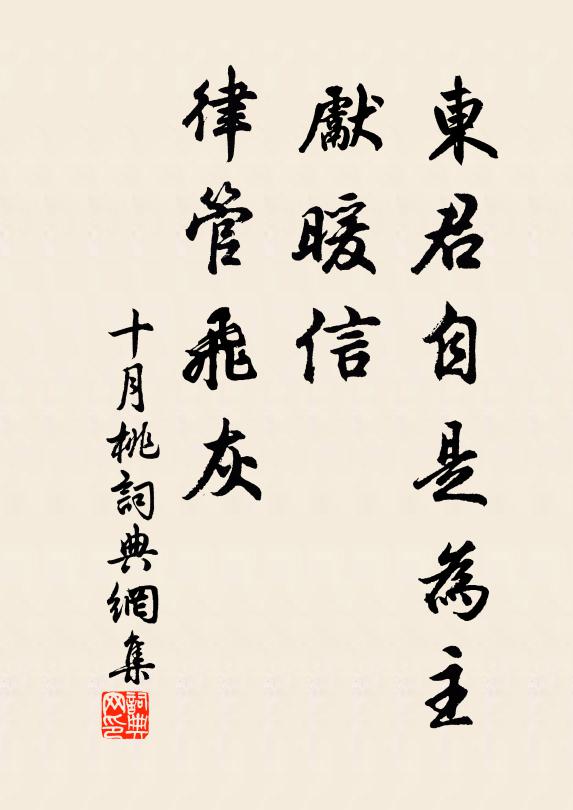 東君自是為主
獻暖信
律管飛灰
十月桃詞典網集
詞典网印